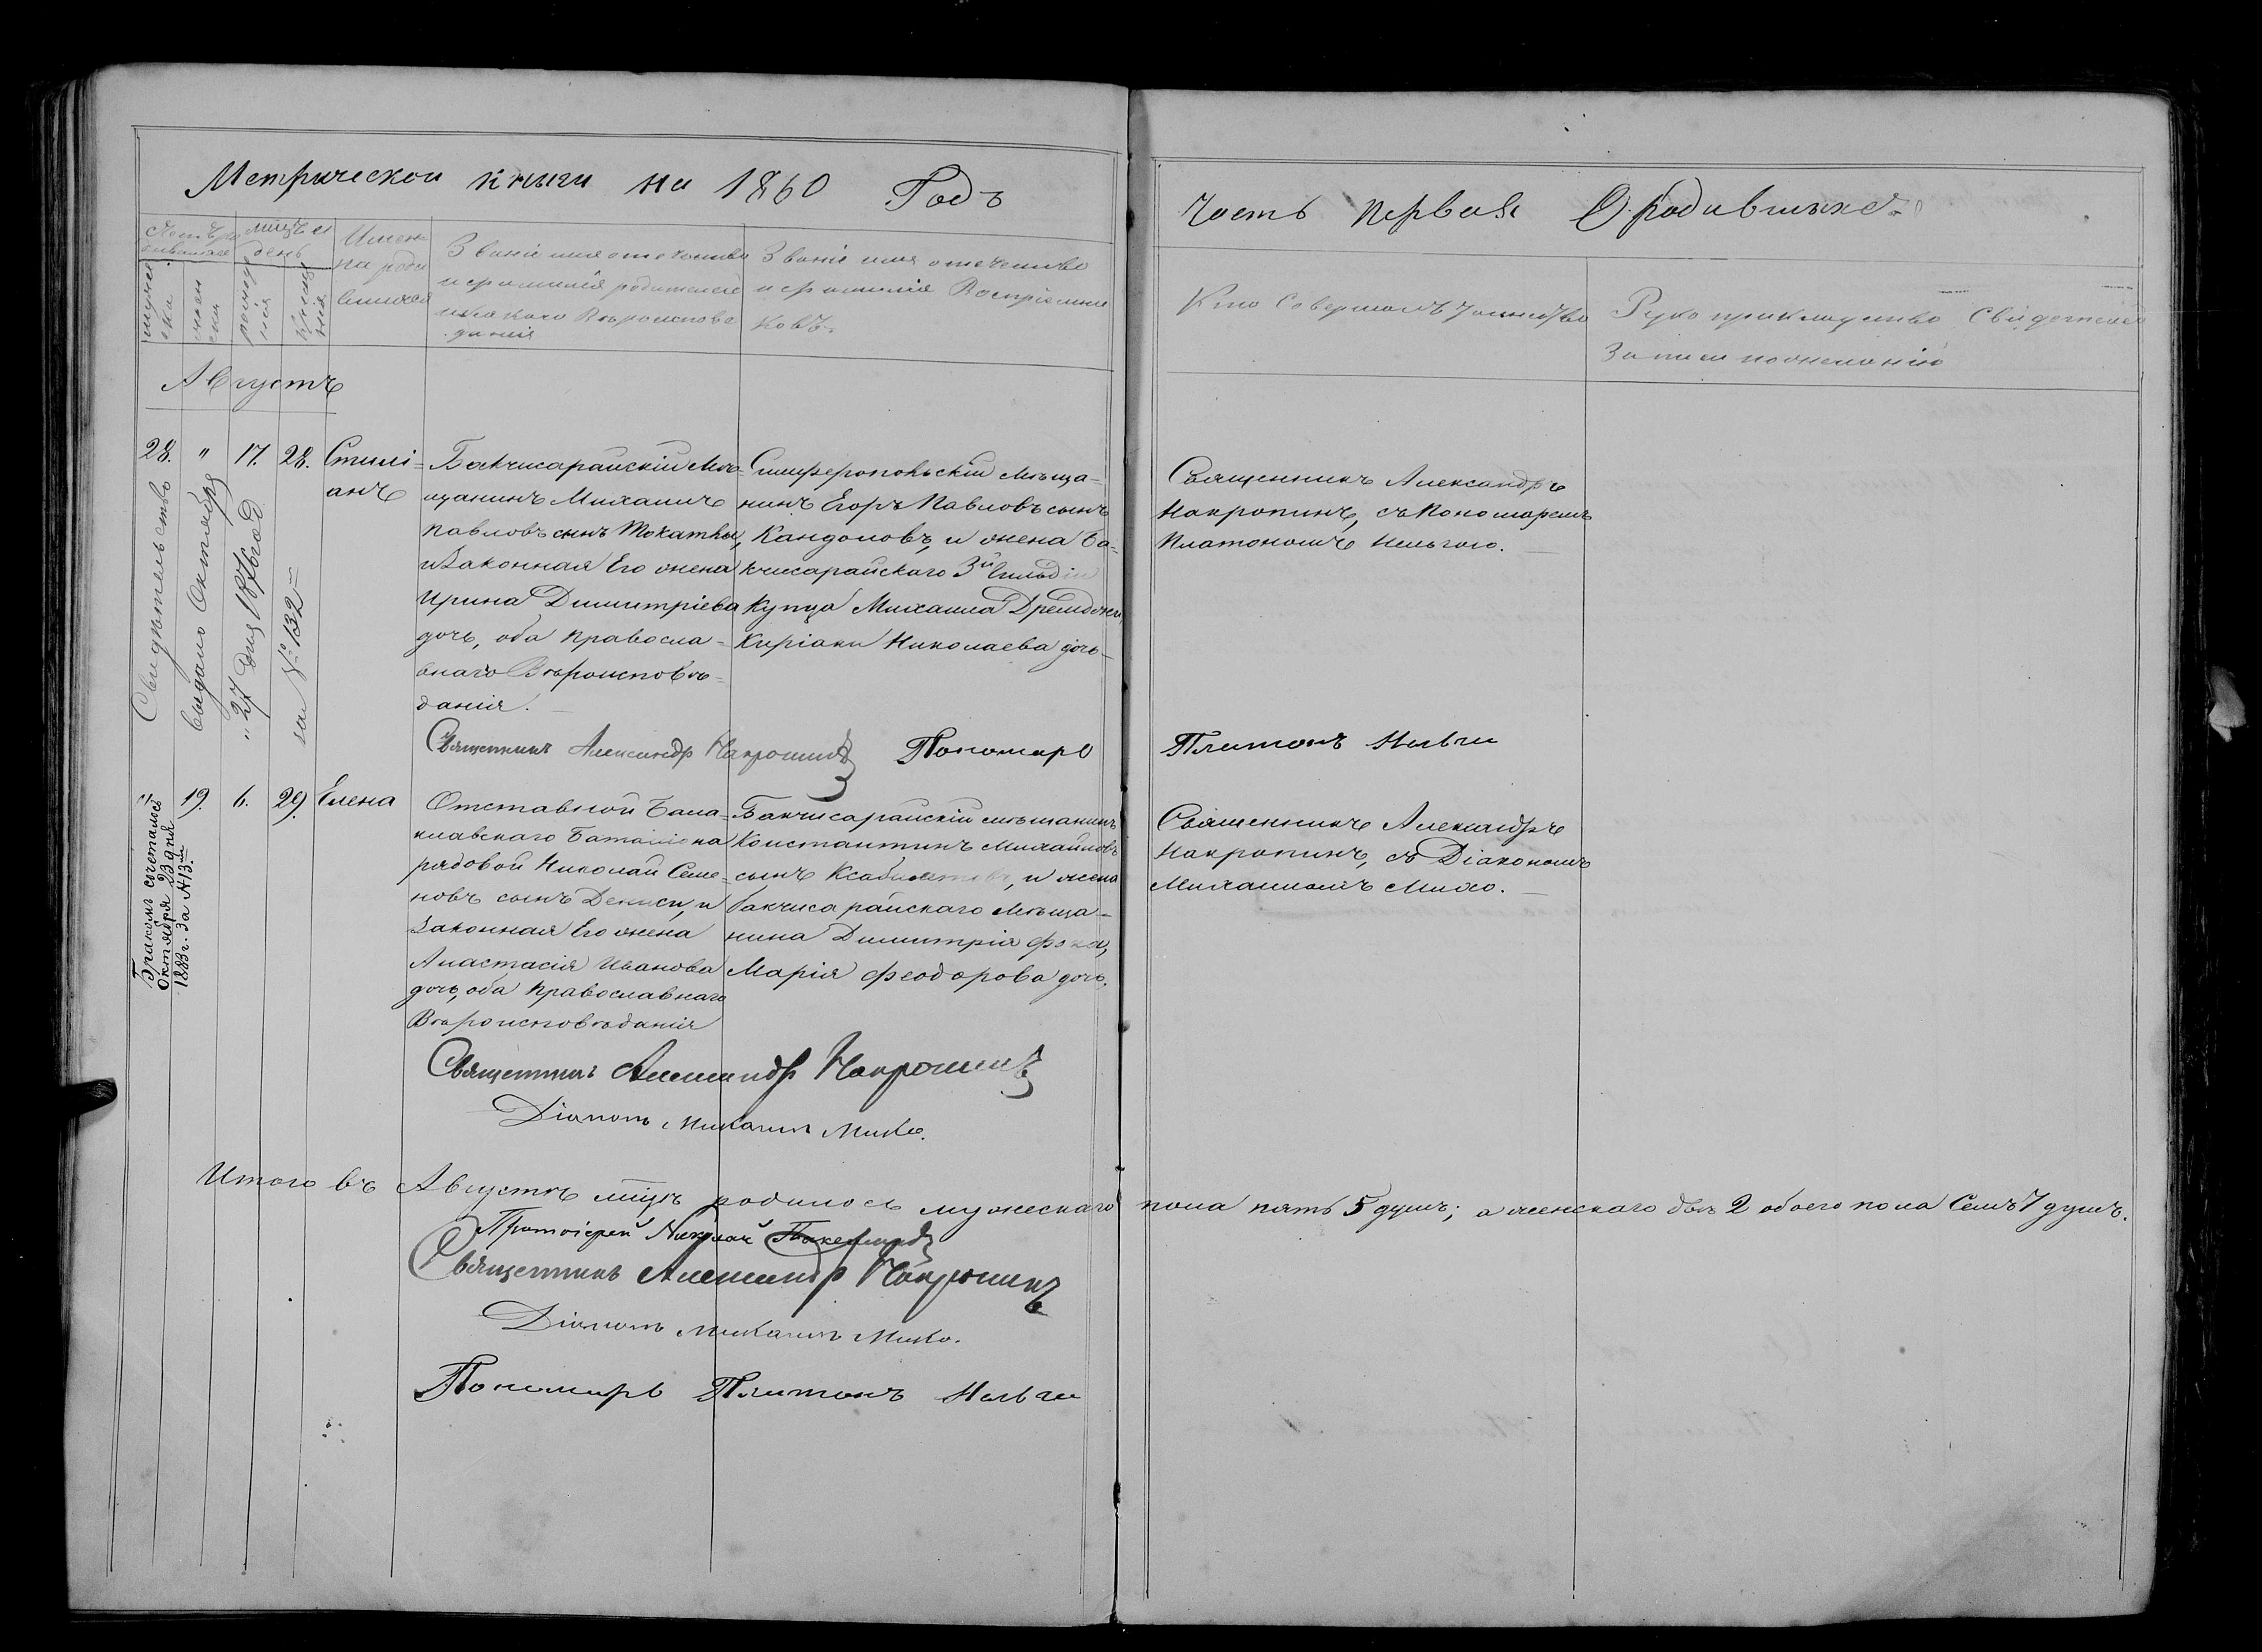 Метрической книги на 1860 Годъ
Часть первая О родившихся
мѣсяцъ и
день
Имена
родившихся
Званіе имя отечество
и фамилія родителей
и какого Вѣроисповѣ
данія
Званіе имя отечество
и фамилія Воспріемни
ковъ
Кто Совершалъ Таинство
Рукоприкладство Свидѣтелей
Записи по желанію
Августъ
28. " 17. 28. Стилі=
анъ
Бакчисарайскій Мѣ=
щанинъ Михаилъ
Павловъ сынъ Токатлы,
и Законная Его жена
Ирина Димитріева
дочь, оба Правосла=
внаго Вѣроисповѣ=
данія.
Симферопольскій мѣща=
нинъ Егоръ Павловъ сынъ
Кандоловъ, и жена Ба=
кчисарайскаго 3й Гильдіи
Купца Михаила
Киріаки Николаева дочь
Священникъ Александръ
Накропинъ, съ Пономаремъ
Платономъ Нельгою.
Свидѣтельство
выдано Октября
"27" дня 1876 года
за № 132
Священникъ Александръ Накропинъ Пономарь Платонъ
19. 6. 29. Елена
Отставной Бала=
клавскаго Баталіона
рядовой Николай Семе=
новъ сынъ Дениси, и
Законная Его жена
Анастасія Иванова
дочь, оба Православнаго
Вѣроисповѣданія
Бакчисарайскій мѣщанинъ
Константинъ Михайловъ
сынъ и жена
бакчисарайскаго Мѣща=
нина Димитрія Фока,
Марія Феодорова дочь.
Священникъ Александръ
Накропинъ, съ Діакономъ
Михаиломъ Михо.
Бракомъ сочеталась
Октября 23 дня
1883 г. За № 13м
Священникъ Александръ Накропинъ
Діаконъ Михаилъ Михо.
Итого въ Августѣ мцѣ родилось мужескаго пола пять 5 душъ; а женскаго двѣ 2 обоего пола Семь 7 душъ.
Протоіерей
Священникъ Александръ Накропинъ
Діаконъ Михаилъ Михо.
Пономарь Платонъ